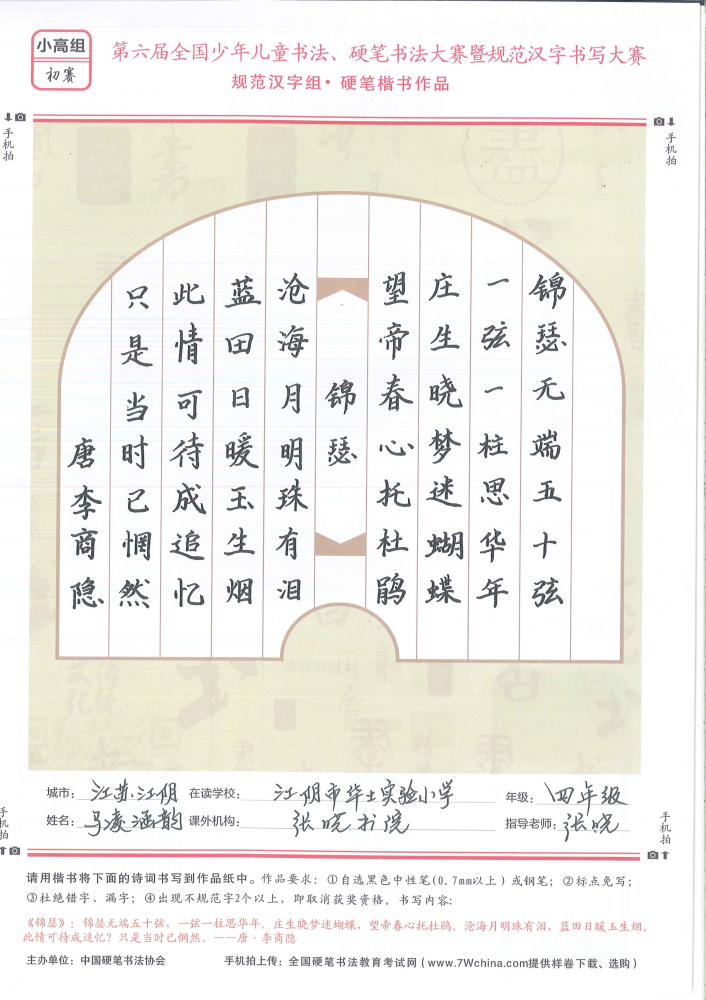 小高组
初赛
第六届全国少年儿童书法、硬笔书法大赛暨规范汉字书写大赛
规范汉字组·硬笔楷书作品
手机拍
手机拍
锦瑟无端五十弦
一弦一柱思华年
庄生晓梦迷蝴蝶
望帝春心托杜鹃
锦瑟
沧海月明珠有泪
蓝田日暖玉生烟
此情可待成追忆
只是当时已惘然
唐李商隐
城市：江苏江阴 在读学校：江阴市华士实验小学 年级：四年级
姓名：凌涵韵 课外机构：张晓书院 指导老师：张晓
手机拍
手机拍
请用楷书将下面的诗词书写到作品纸中。作品要求：①自选黑色中性笔(0.7mm以上)或钢笔；②标点免写；
③杜绝错字、漏字；④出现不规范字2个以上，即取消获奖资格。书写内容：
《锦瑟》：锦瑟无端五十弦，一弦一柱思华年。庄生晓梦迷蝴蝶，望帝春心托杜鹃。沧海月明珠有泪，蓝田日暖玉生烟。
此情可待成追忆？只是当时已惘然。——唐·李商隐
主办单位：中国硬笔书法协会 手机拍上传：全国硬笔书法教育考试网（www.7Wchina.com提供样卷下载、选购）